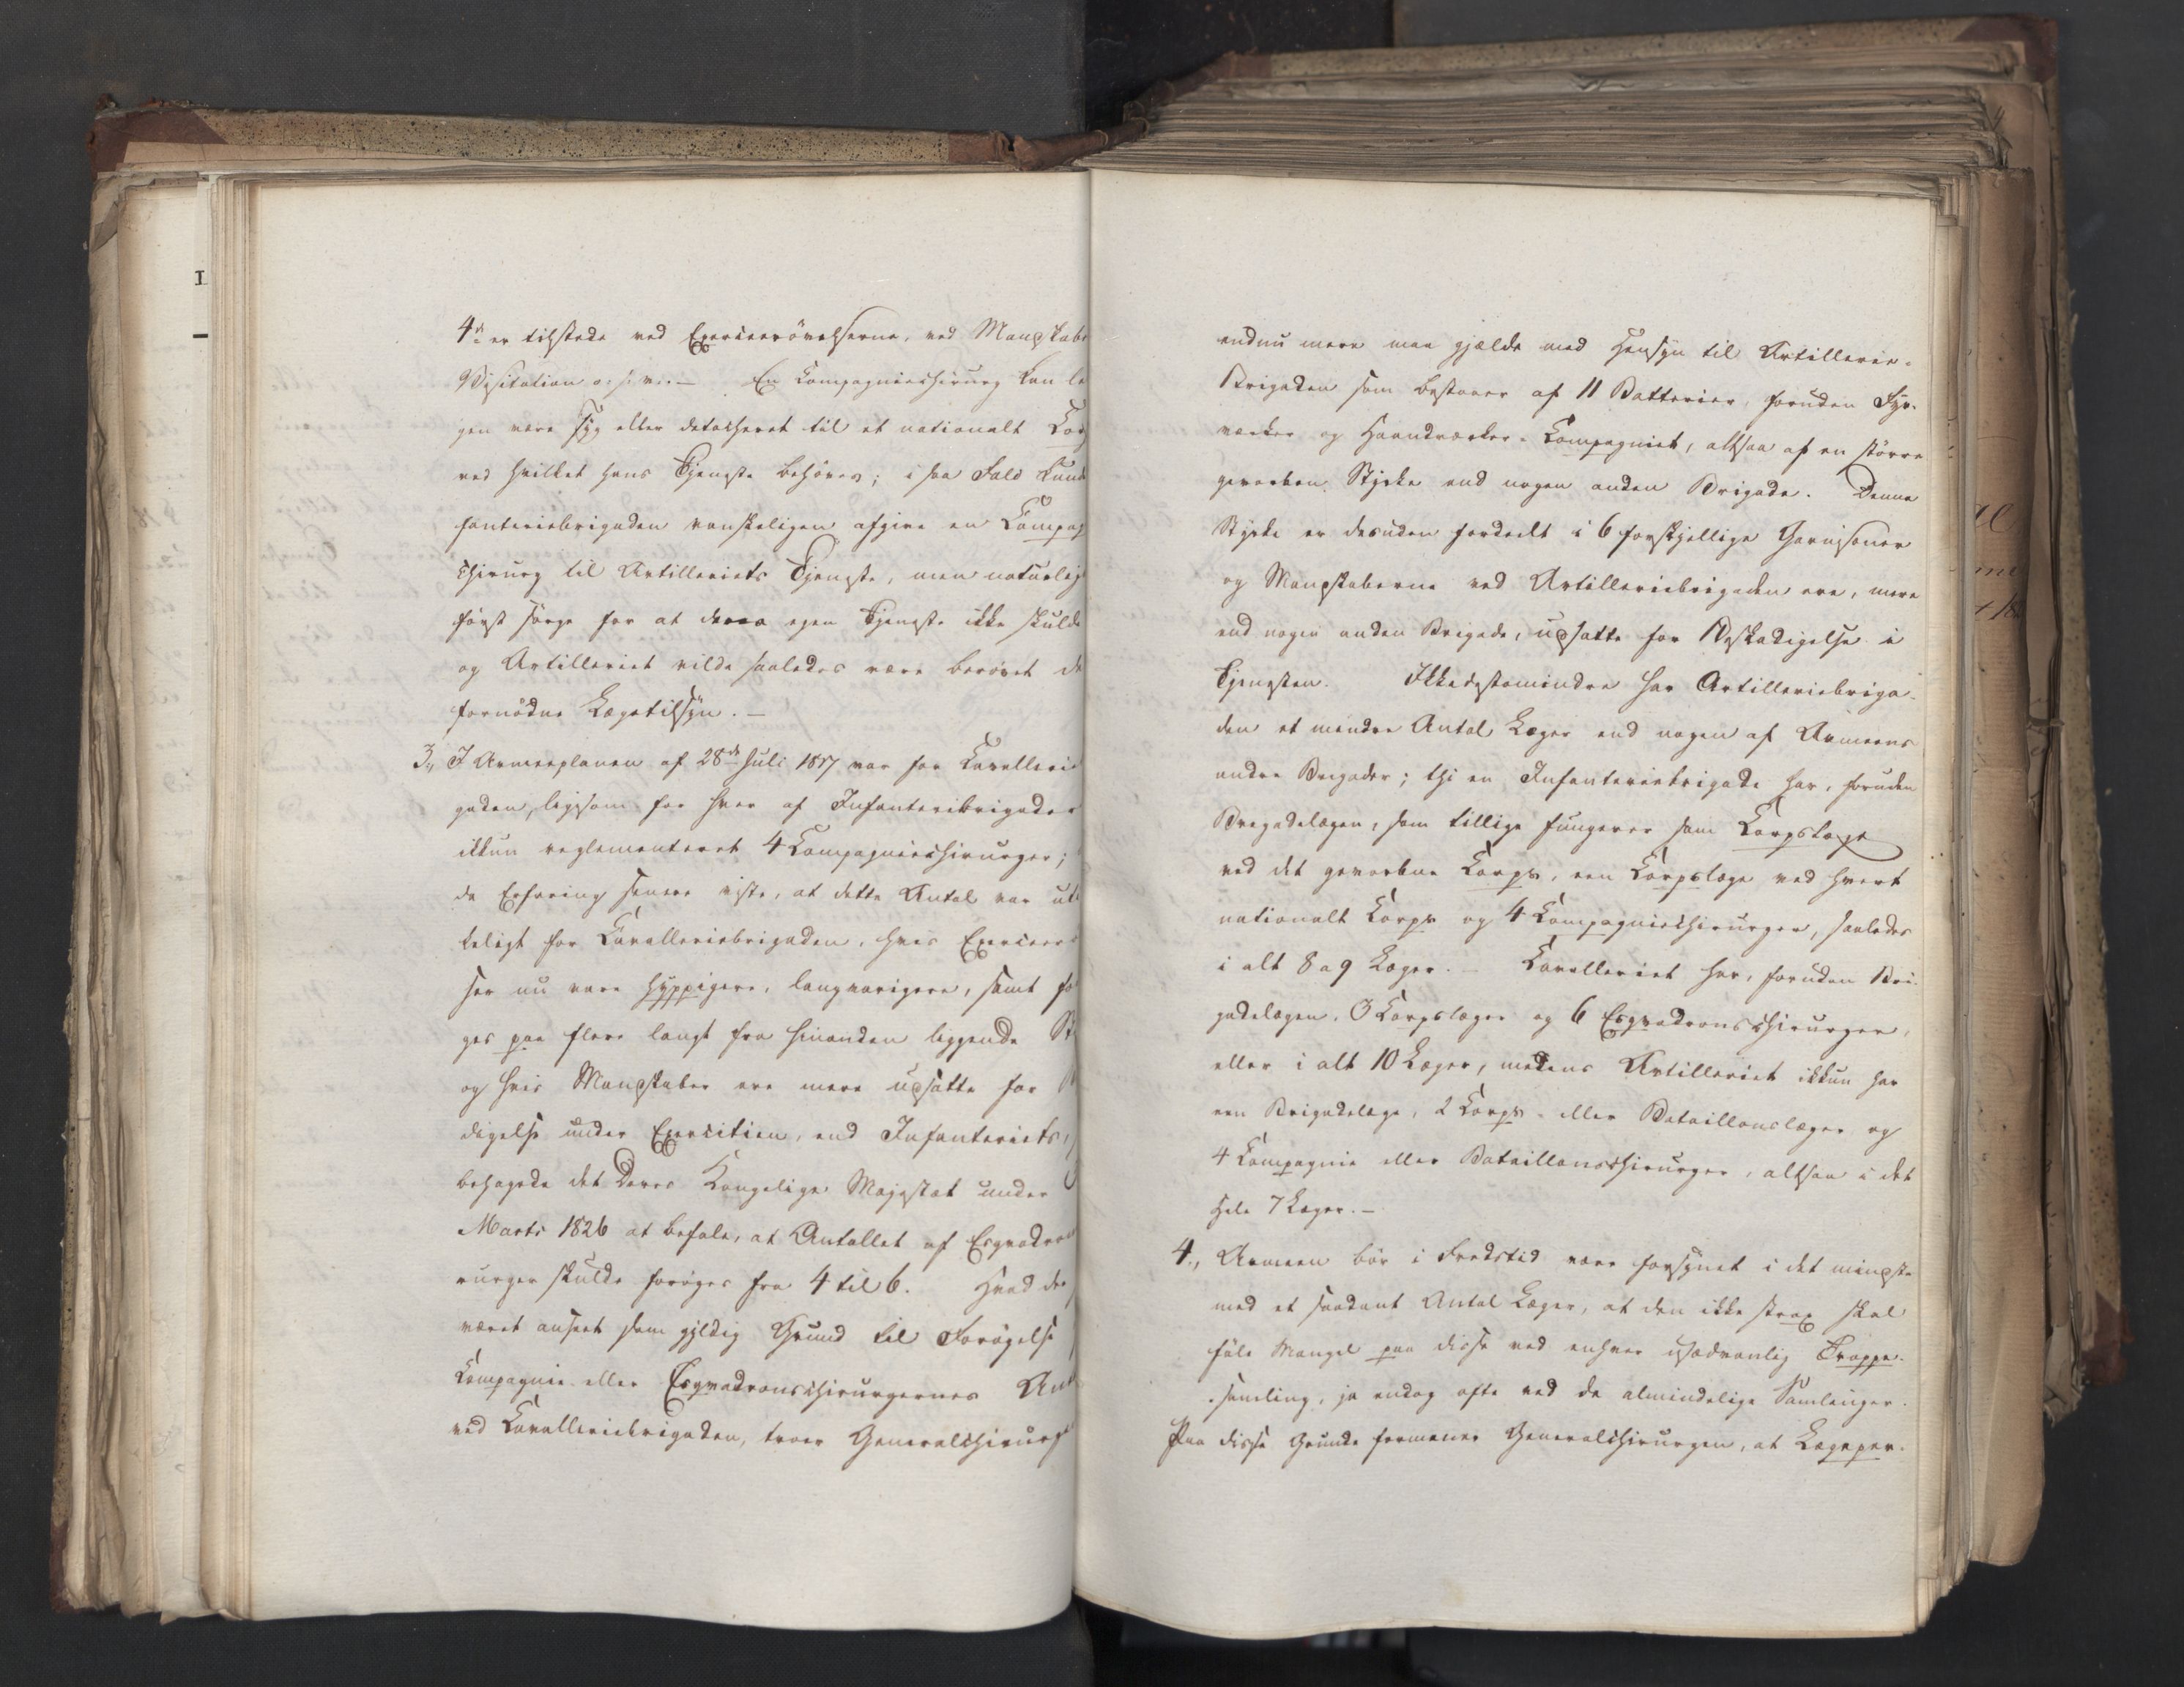 4de er tilstede ved Exerceerövelserne, ved Mandskabs
Visitation o: s: v: – En Compagniechirurg kan le
gen være syg eller detacheret til et nationalt Cor
ved hvilket hans Tjeneste behöves; i saa Fald kund
fanteriebrigaden vanskeligen afgive en Compag
chirurg til Artilleriets Tjeneste, men naturlig
først sørge for at deres egen Tjeneste ikke skulde
og Artilleriet vilde saaledes være berövet de
fornödne Lægetilsyn. –
3., I Armeeplanen af 28de Juli 1817 var for Cavallerie
gaden, ligesom for hver af Infanteribrigader
ikkun reglementeret 4 Compagniechirurger;
da Erfaring senere viste, at dette Antal var uti
keligt for Cavalleriebrigaden, hvis Exerceer
ser nu vare hyppigere, langvarigere, samt fo
ges paa flere langt fra hinanden liggende St
og hvis Mandskaber ere mere udsatte for
digelse under Exercitien, end Infanteriets,
behagede det Deres Kongelige Majestæt under
Marts 1826 at befale, at Antallet af Esqvadron
rurger skulde foröges fra 4 til 6. Hvad der
været anseet som gyldig Grund til Forögelse
Compagnie- eller Esqvadronschirurgernes Ant
ved Cavalleriebrigaden, troer Generalchirurg
I
endnu mere maa gjælde med Hensyn til Artillerie-
Brigaden som bestaaer af 11 Batterier foruden Fyr-
værker og Haandværker-Compagniet, altsaa af en större
geworben Styrke end nogen anden Brigade. Denne
Styrke er desuden fordeelt i 6 forskjellige Garnisoner
og Mandskaberne ved Artilleriebrigaden ere, mere
end nogen anden Brigade, udsatte for Beskadigelse i
Tjenesten. Ikkedestomindre har Artilleriebriga-
den et mindre Antal Læger end nogen af Armeens
andre Brigader; thi en Infanteriebrigade har, foruden
Brigadelægen, som tillige fungerer som Corpslæge
ved det gevorbne Corps, een Corpslæge ved hvert
nationalt Corps og 4 Compagniechirurger, saaledes
i alt 8 a 9 Læger. – Cavalleriet har, foruden Bri-
gadelægen, 3 Corpslæger og 6 Esqvadronschirurger,
eller i alt 10 Læger, medens Artilleriet ikkun har
een Brigadelæge, 2 Corps- eller Bataillonslæger og
4 Compagnie eller Bataillonschirurger, altsaa i det
Hele 7 Læger. –
4., Armeen bör i Fredstid være forsynet i det mindste
med et saadant Antal Læger, at den ikke strax skal
föle Mangel paa disse ved enhver usædvanlig Troppe-
samling, ja endog ofte ved de almindelige Samlinger.
Paa disse Grunde formener Generalchirurgen, at Lægeper-